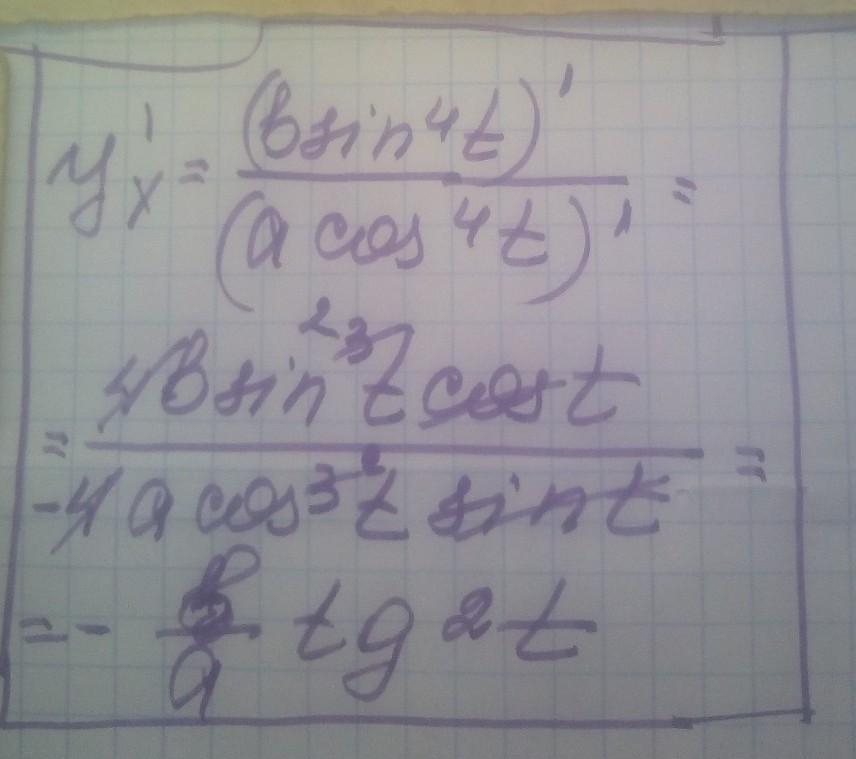 y'ₓ = (b sin⁴t)' / (a cos⁴t)' =
= 4b sin³t cos t / -4a cos³t sin t =
= - b/a tg²t